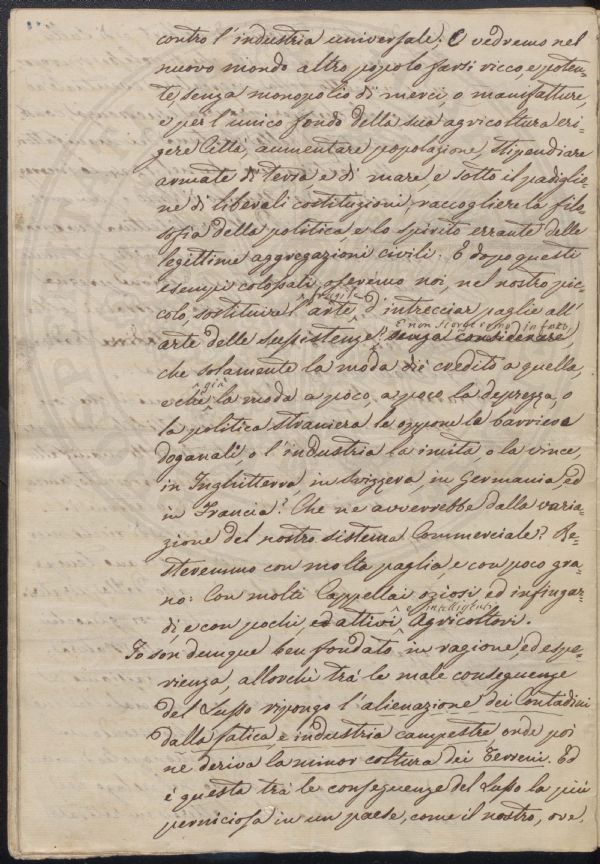 contro l'industria universale; E vedremo nel
nuovo mondo altro popolo farsi ricco, e poten-
te, senza monopolio di merci, o manifatture,
e per l'unico fondo della sua agricoltura eri-
gere Città, aumentare popolazione, stipendiare
armate di terra e di mare, e sotto il padiglio-
ne di liberali costituzioni, raccogliere la filo-
sofia della politica, e lo spirito errante delle
legittime aggregazioni civili. E dopo questi
esempi colossali, oseremo noi, nel nostro pic-
fragile
colo, sostituire l'arte d'intrecciar paglie all'
E non si
arte delle sussistenze? senza considerare
che solamente la moda diè credito a quella,
già
e che la moda a poco, a poco la deprezza, o
la politica straniera le oppone le barriere
doganali, o l'industria la imita o la vince,
in Inghilterra, in Svizzera, in Germania, ed
in Francia? Che ne avverrebbe dalla varia-
zione del nostro sistema Commerciale? Re-
steremmo con molta paglia, e con poco gra-
no: Con molti Cappellai oziosi ed infingar-
e intelligenti
di, e con pochi, ed attivi Agricoltori.
Io son dunque ben fondato in ragione, ed espe-
rienza, allorchè trà le male conseguenze
del Lusso ripongo l'alienazione dei Contadini
dalla fatica, e industria campestre, onde poi
ne deriva la minor coltura dei Terreni. Ed
è questa trà le conseguenze del Lusso la più
perniciosa in un paese, come il nostro, ove,